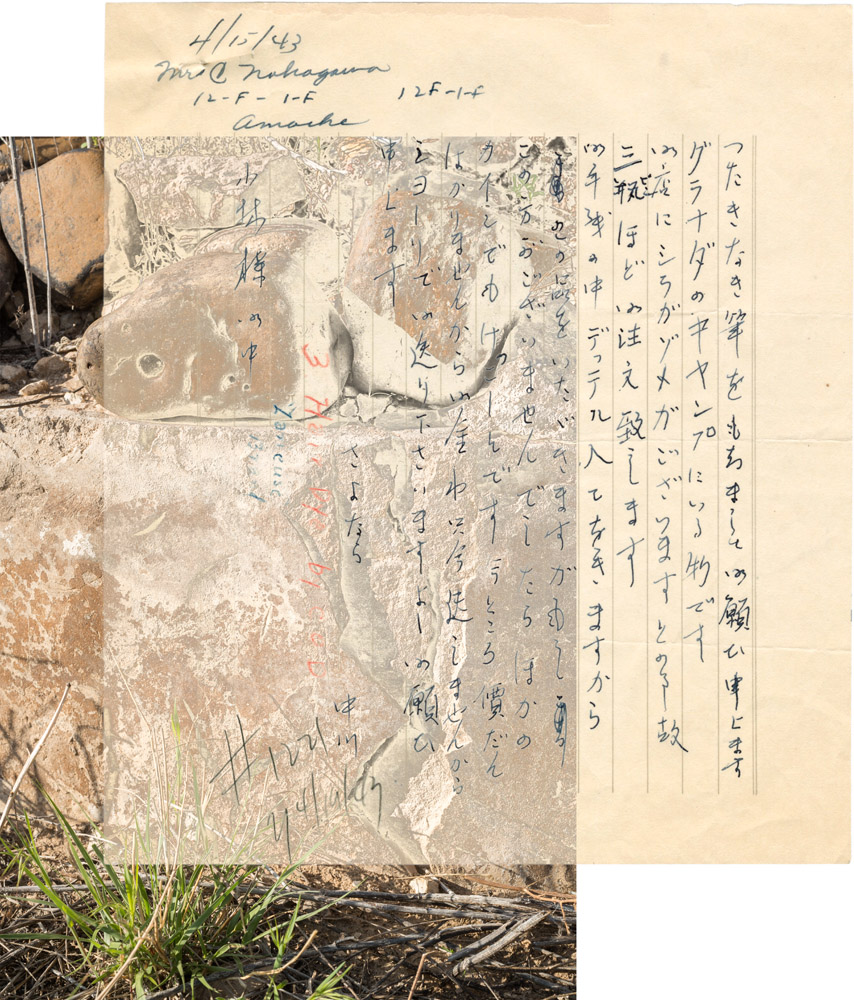 4/15/43
Mrs C Nakagawa
12-F-1-F 12F-1-F
Amache
つたきなき筆をもちまして御願ひ申上ます
グラナダのキャンプにいる物です
御店にシラガゾメがございますとの事故
三瓶ほど御注文致します
御手残の中 入ておきますから
品をいただきますがもし
この方がございませんでしたらほかの
カインでもけっ んです 今ところ價だん
はかりませんから御金わ只今送しませんから
で御送り下さいますよー御願ひ
申上ます
さよなら
中川
小林様御中
3 Hair Dye by
#1221
4/19/43